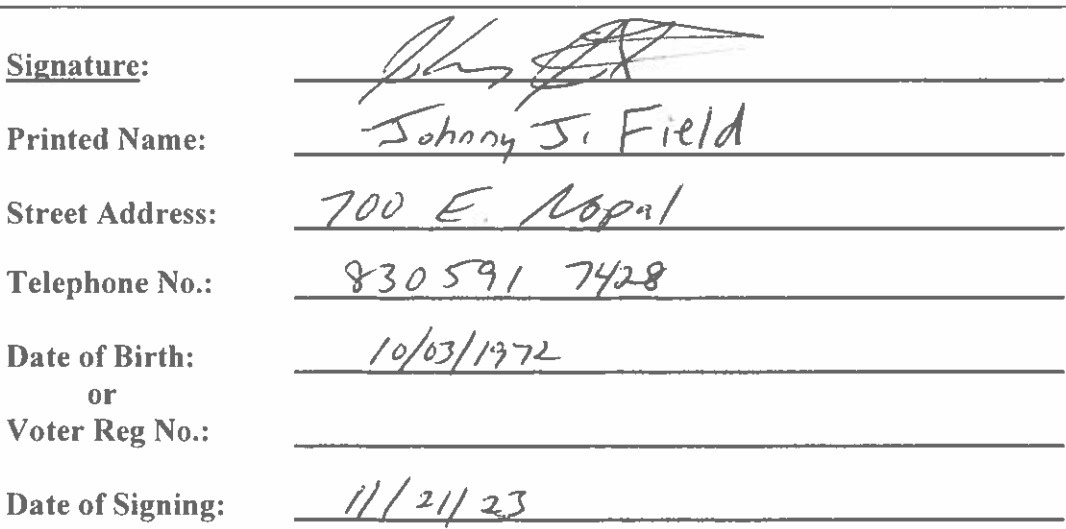 Signature:
Printed Name: Johnny J. Field
Street Address: 700 E. Nopal
Telephone No.: 830 591 7428
Date of Birth: 10/03/1972
or
Voter Reg No.:
Date of Signing: 11/21/23